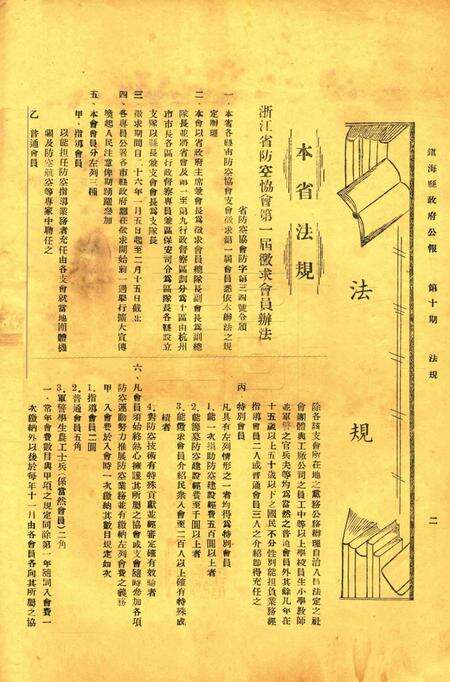 鎮海縣政府公報　第十期　法規
二
法規
本省法規
浙江省防空協會第一屆徵求會員辦法
省防空協會防字第三四號令頒
一．本省各縣市防空協會支會徵求第一屆會員悉依本辦法之規
定辦理
二．本會以省政府主席兼會長為徵求會員總隊長副會長為副總
隊長並將省會及第一至第九行政督察區劃分為十區由杭州
市市長各區行政督察專員兼區保安司令為區隊長各縣設立
支隊以縣長兼支會會長為支隊長
三．徵求期間自二十六年一月五日起至二月十五日截止
四．各專員公署各市縣政府應在徵求開始前一週舉行擴大宣傳
喚起人民注意俾期踴躍參加
五．本會會員分左列三種
甲．指導會員
以能担任防空指導業務者充任由各支會就當地團體機
關及防空航空等專家中聘任之
乙　普通會員
除各該支會所在地之黨務公務辦理自治人員法定之社
會團體與工廠公司之員工中等以上學校員生小學教師
並軍警之官兵夫等均為當然之普通會員外其餘凡年在
十五歲以上五十歲以下之國民不分性別能担負業務經
指導會員二人或普通會員三人之介紹即得充任之
丙　特別會員
凡具有左列情形之一者均得為特別會員
1.能一次捐助防空建設經費五百圓以上者
2.能籌募防空建設經費至千圓以上者
3.能徵求會員介紹民衆入會至二百人以上確有特殊成
績者
4.對防空技術有特殊貢獻並經審定確有效騐者
六．凡會員須始終熱心擁護其所屬之協會或支會隨時參加各項
防空運動努力推展防空業務並有繳納左列會費之義務
甲　入會費於入會時一次繳納其數目規定如次
1.指導會員二圓
2.普通會員五角
3.軍警學生農工士兵（係當然會員）二角
一．常年會費數目與甲項之規定同除第一年隨同入會費一
次繳納外以後於每年十一月由各會員各向其所屬之協